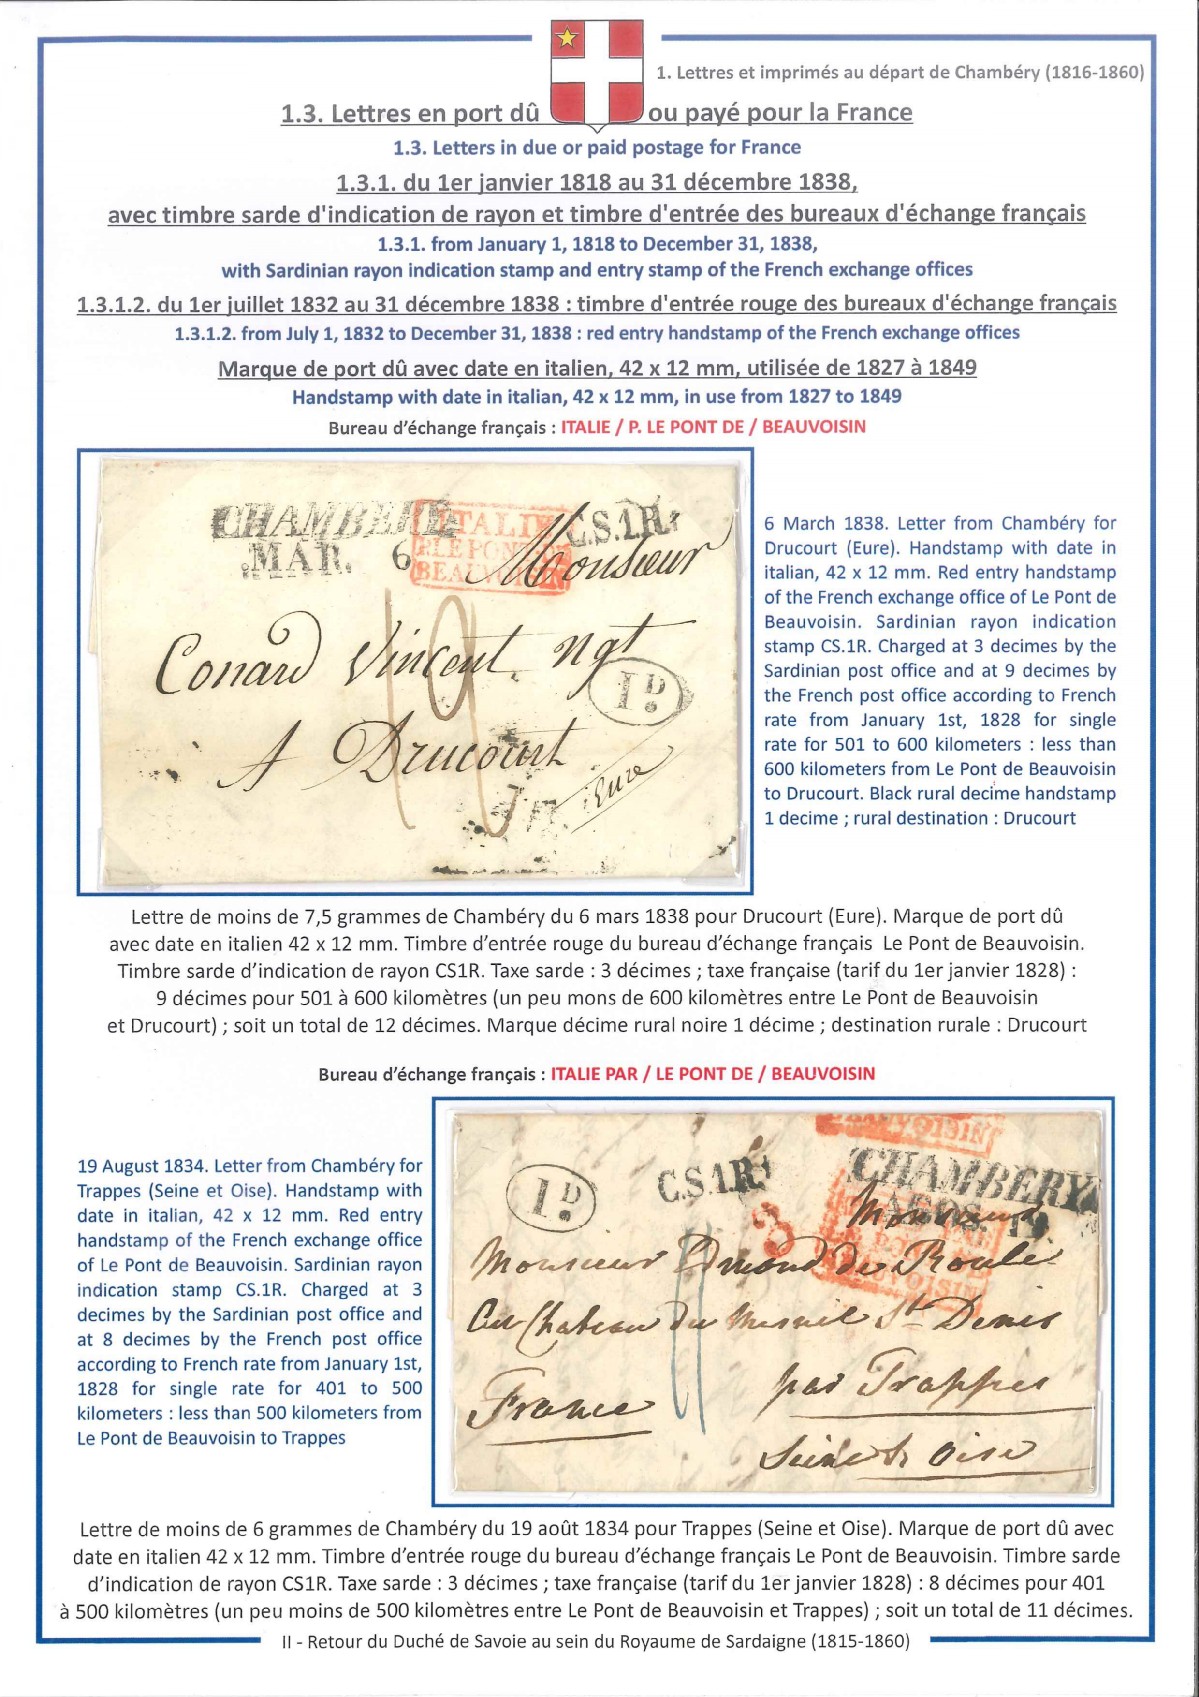 1. Lettres et imprimés au départ de Chambéry (1816-1860)
1.3. Lettres en port dû ou payé pour la France
1.3. Letters in due or paid postage for France
1.3.1. du 1er janvier 1818 au 31 décembre 1838,
avec timbre sarde d'indication de rayon et timbre d'entrée des bureaux d'échange français
1.3.1. from January 1, 1818 to December 31, 1838,
with Sardinian rayon indication stamp and entry stamp of the French exchange offices
1.3.1.2. du 1er juillet 1832 au 31 décembre 1838 : timbre d'entrée rouge des bureaux d'échange français
1.3.1.2. from July 1, 1832 to December 31, 1838 : red entry handstamp of the French exchange offices
Marque de port dû avec date en italien, 42 x 12 mm, utilisée de 1827 à 1849
Handstamp with date in italian, 42 x 12 mm, in use from 1827 to 1849
Bureau d'échange français : ITALIE / P. LE PONT DE / BEAUVOISIN
CHAMBERY
MAR. 6
ITALIE
P. LE PONT DE
BEAUVOISIN
C.S.1.R.
Monsieur
Conard Vincent ngt
1 D.
A Drucourt
Eure
6 March 1838. Letter from Chambéry for
Drucourt (Eure). Handstamp with date in
italian, 42 x 12 mm. Red entry handstamp
of the French exchange office of Le Pont de
Beauvoisin. Sardinian rayon indication
stamp CS.1R. Charged at 3 decimes by the
Sardinian post office and at 9 decimes by
the French post office according to French
rate from January 1st, 1828 for single
rate for 501 to 600 kilometers : less than
600 kilometers from Le Pont de Beauvoisin
to Drucourt. Black rural decime handstamp
1 decime ; rural destination : Drucourt
Lettre de moins de 7,5 grammes de Chambéry du 6 mars 1838 pour Drucourt (Eure). Marque de port dû
avec date en italien 42 x 12 mm. Timbre d'entrée rouge du bureau d'échange français Le Pont de Beauvoisin.
Timbre sarde d'indication de rayon CS1R. Taxe sarde : 3 décimes ; taxe française (tarif du 1er janvier 1828) :
9 décimes pour 501 à 600 kilomètres (un peu mons de 600 kilomètres entre Le Pont de Beauvoisin
et Drucourt) ; soit un total de 12 décimes. Marque décime rural noire 1 décime ; destination rurale : Drucourt
Bureau d'échange français : ITALIE PAR / LE PONT DE / BEAUVOISIN
19 August 1834. Letter from Chambéry for
Trappes (Seine et Oise). Handstamp with
date in italian, 42 x 12 mm. Red entry
handstamp of the French exchange office
of Le Pont de Beauvoisin. Sardinian rayon
indication stamp CS.1R. Charged at 3
decimes by the Sardinian post office and
at 8 decimes by the French post office
according to French rate from January 1st,
1828 for single rate for 401 to 500
kilometers : less than 500 kilometers from
Le Pont de Beauvoisin to Trappes
1 D.
C.S.1.R.
CHAMBERY
19.
3
Monsieur
Monsieur
Au Chateau du Mesnil St Denis
France
par Trappes
Seine & Oise
11
Lettre de moins de 6 grammes de Chambéry du 19 août 1834 pour Trappes (Seine et Oise). Marque de port dû avec
date en italien 42 x 12 mm. Timbre d'entrée rouge du bureau d'échange français Le Pont de Beauvoisin. Timbre sarde
d'indication de rayon CS1R. Taxe sarde : 3 décimes ; taxe française (tarif du 1er janvier 1828) : 8 décimes pour 401
à 500 kilomètres (un peu moins de 500 kilomètres entre Le Pont de Beauvoisin et Trappes) ; soit un total de 11 décimes.
II - Retour du Duché de Savoie au sein du Royaume de Sardaigne (1815-1860)